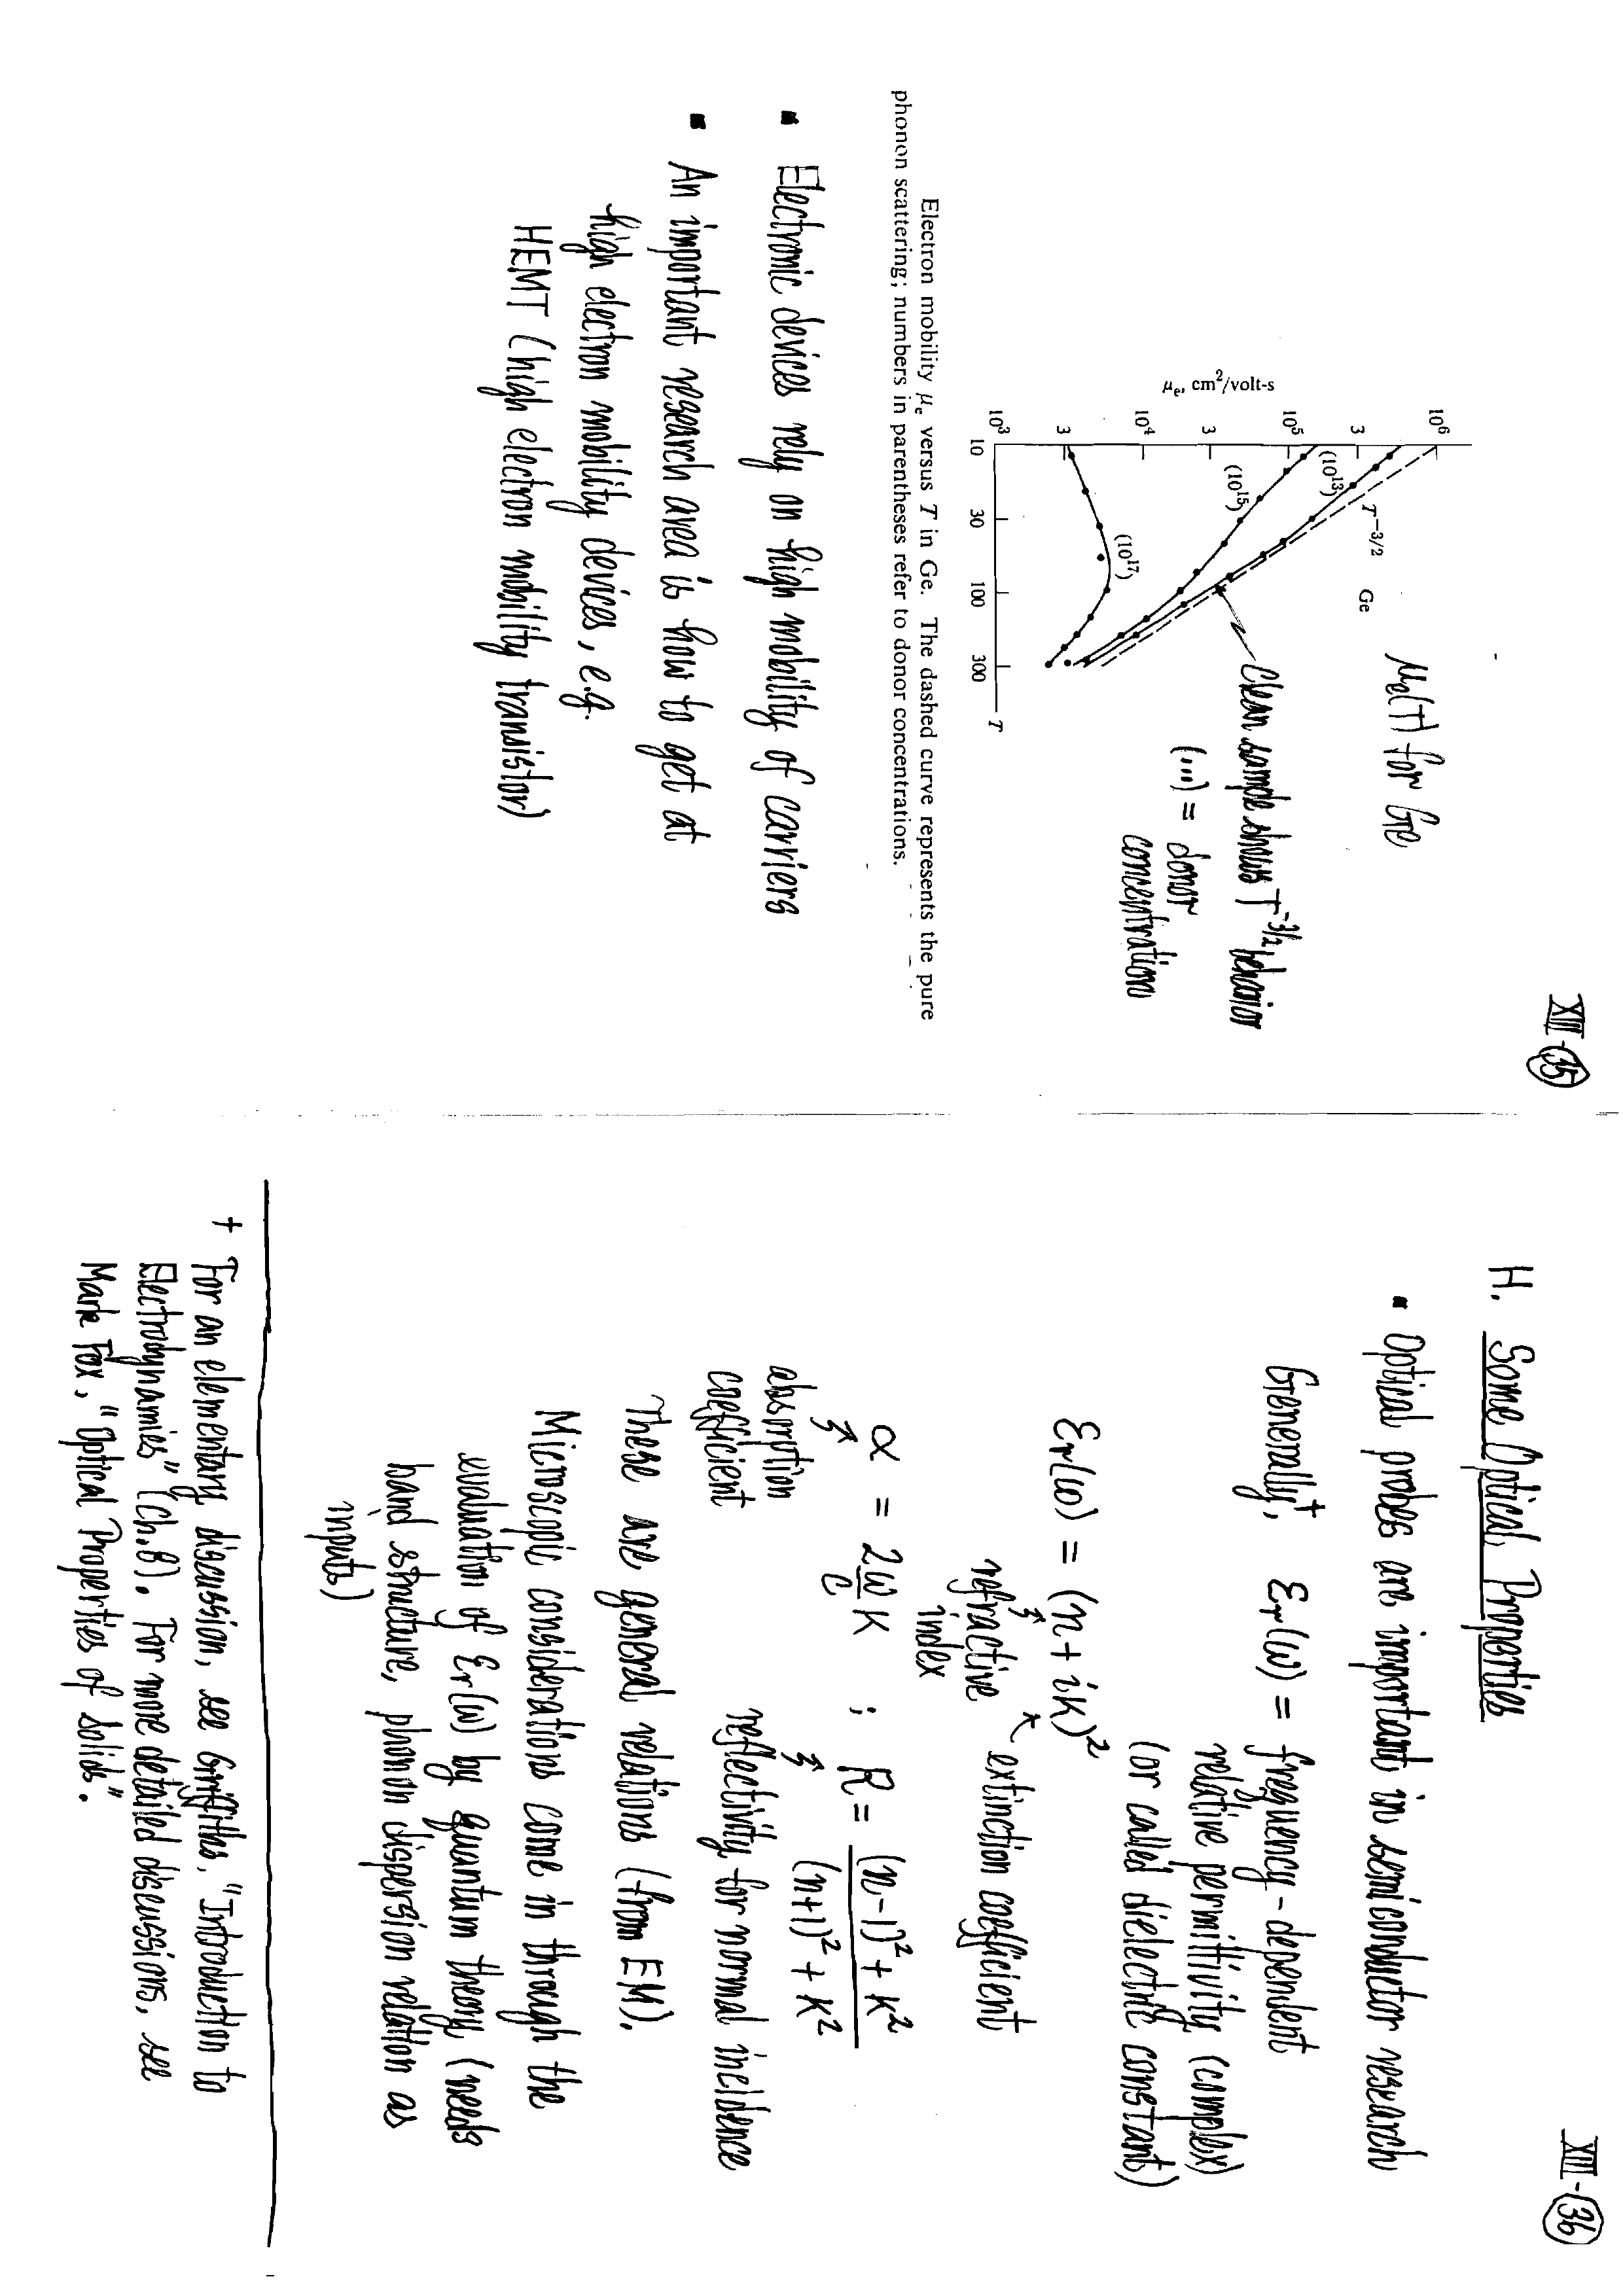 XIII-(35)
μe(T) for Ge
μe, cm²/volt-s
10⁶
3
10⁵
3
10⁴
3
10³
10
30
100
300
T
T^-3/2
Ge
(10¹³)
(10¹⁵)
(10¹⁷)
Clean sample shows T^-3/2 behavior
(...) = donor
concentration
Electron mobility μe versus T in Ge. The dashed curve represents the pure
phonon scattering; numbers in parentheses refer to donor concentrations.
▪ Electronic devices rely on high mobility of carriers
▪ An important research area is how to get at
high electron mobility devices, e.g.
HEMT (high electron mobility transistor)
XIII-(36)
H. Some Optical Properties
▪ Optical probes are important in semiconductor research
Generally†, εr(ω) = frequency-dependent
relative permittivity (complex)
(or called dielectric constant)
εr(ω) = (n + iK)²
refractive
index
extinction coefficient
α = 2ω/c K ; R = ((n-1)² + K²)/((n+1)² + K²)
absorption
coefficient
reflectivity for normal incidence
These are general relations (from EM).
Microscopic considerations come in through the
evaluation of εr(ω) by quantum theory (needs
band structure, phonon dispersion relation as
inputs)
† For an elementary discussion, see Griffiths, "Introduction to
Electrodynamics" (Ch.8). For more detailed discussions, see
Mark Fox, "Optical Properties of Solids".